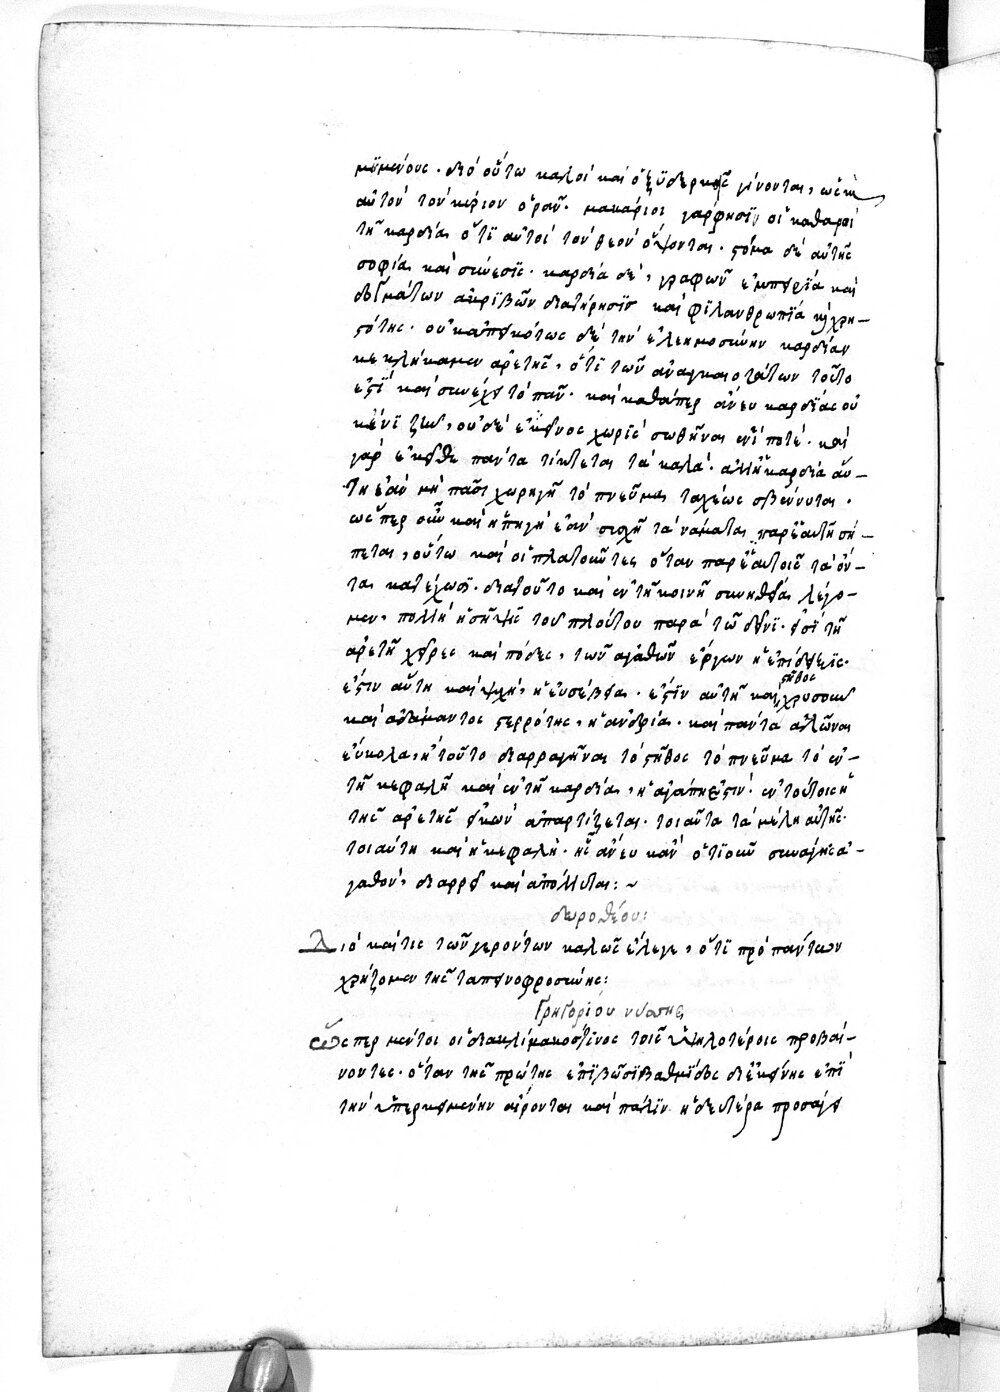 μϋμένους· διὸ οὕτω καλοὶ καὶ ὀξϋδερκεῖς γίνονται, ὡς καὶ
αὐτὸν τὸν κύριον ὁρᾶν. μακάριοι γάρ φησϊν οἱ καθαροὶ
τῇ καρδίᾳ ὅτϊ αὐτοὶ τὸν θεὸν ὄψονται· στόμα δὲ αὐτῆς
σοφία καὶ σύνεσϊς· καρδία δὲ, γραφῶν ἐμπειρϊα καὶ
δογμάτων ἀκριβῶν διατήρησϊς καὶ φϊλανθρωπϊα κ χρη–
στότης· οὐκ ἀπεικότως δὲ τὴν ἐλεημοσύνην καρδίαν
κεκλήκαμεν ἀρετῆς, ὅτϊ τῶν ἀναγκαιοτάτων τοῦτο
ἐστϊ καὶ συνέχει τὸ πᾶν· καὶ καθάπερ ἄνευ καρδϊας οὐ
κ ἔνϊ ζῆν, οὐδὲ ἐκείνος χωρϊς σωθῆναι ἐνῒ ποτέ· καὶ
γὰρ ἐκεῖθε πάντα τίκτεται τὰ καλά· ἀλλ' ἡ καρδία αὕ–
τη ἐὰν μὴ πᾶσϊ χωρηγῇ τὸ πνεῦμα ταχέως σβέννυται·
ὥσπερ οὖν καὶ ἡ πηγὴ ἐὰν συσχῇ τὰ νάματα παρ' ἑαυτῇ σή–
πεται, οὕτω καὶ οἱ πλουτοῦντες ὅταν παρ' ἑαυτοῖς τὰ ὄν–
τα κατέχωσϊ· διατοῦτο καὶ ἐν τῇ κοινῇ συνηθείᾳ λέγο–
μεν, πολλὴ ἡ σῆψϊς τοῦ πλούτου παρὰ τῶ δεῖνϊ· εἰσϊ τῇ
ἀρετῇ χεῖρες καὶ πόδες, τῶν ἀγαθῶν ἔργων ἡ ἐπίδειξϊς·
ἐστιν αὕτη καὶ ψυχὴ, ἡ εὐσέβεια· ἐστϊν αὐτῇ καὶ στῆθος χρυσοῦν
καὶ ἀδάμαντος στερρότης, ἡ ἀνδρία· καὶ πάντα ἁλῶναι
εὔκολα, ἢ τοῦτο διαρραγῆναι τὸ στῆθος τὸ πνεῦμα τὸ ἐν–
τῇ κεφαλῇ καὶ ἐν τῇ καρδίᾳ, ἡ ἀγάπη ἐστιν· ἐν τούτοις ἡ
τῆς ἀρετῆς εἰκὼν ἀπαρτίζεται· τοιαῦτα τὰ μέλη αὐτῆς·
τοιαύτη καὶ ἡ κεφαλή· ἧς ἄνευ κἂν ὁτϊοῦν συναγῆς ἀ–
γαθὸν, διαρρεῖ καὶ ἀπόλλυται:~
δωροθέου:
Διὸ καί τις τῶν γερόντων καλῶς ἔλεγε, ὅτϊ πρὸ πάντων
χρήζομεν τῆς ταπεινοφροσύνης:
Γρηγορίου νύσσης
Ὥσπερ μέντοι οἱ διὰ κλίμακος τϊνος τοῖς ὑψηλοτέροις προβαί–
νοντες· ὅταν τῆς πρώτης ἐπϊβῶσϊ βαθμίδος δι' ἐκείνης ἐπϊ
τὴν ὑπερκειμένην αἴρονται καὶ πάλϊν ἡ δευτέρα προσάγει